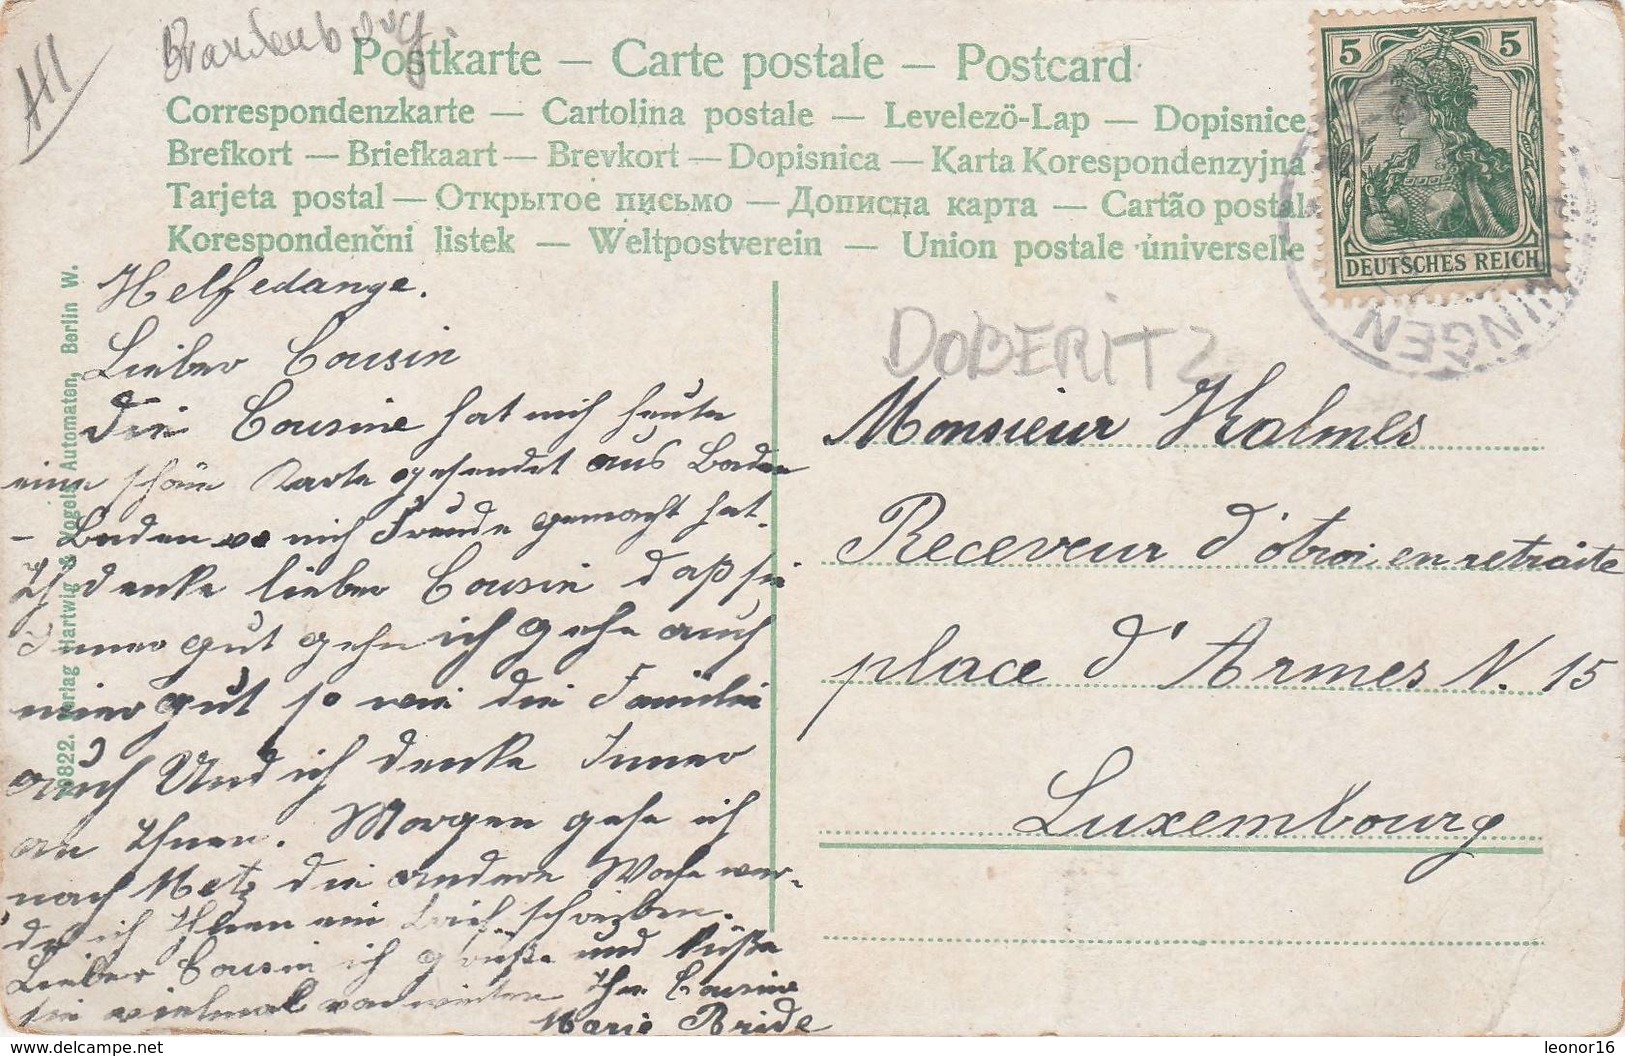 AH
Brandenburg.
Postkarte — Carte postale — Postcard
Correspondenzkarte — Cartolina postale — Levelezö-Lap — Dopisnice
Brefkort — Briefkaart — Brevkort — Dopisnica — Karta Korespondenzyjna
Tarjeta postal — Открытое письмо — Дописна карта — Cartão postal
Korespondenčni listek — Weltpostverein — Union postale universelle
5 5
DEUTSCHES REICH
INGEN
Verlag Hartwig & Vogels Automaten, Berlin W.
Helfedange.
Lieber Cousin
Die Cousine hat mich heute
eine schöne Karte gesendet aus Baden
- Baden wo mich Freude gemacht hat.
Ich denke lieber Cousin daß sie
Immer gut gehn ich gehe auch
mier gut so wie die Familie
auch Und ich denke Immer
an Ihnen. Morgen gehe ich
nach Metz die andere Woche wer-
de ich Ihnen ein Brief schreiben.
Lieber Cousin ich grüße und küße
sie vielmal Ihre Cousine
Marie Bride
DOBERITZ
Monsieur Kalmes
Receveur d'otroi en retraite
place d'Armes N. 15
Luxembourg
leonor16
www.delcampe.net